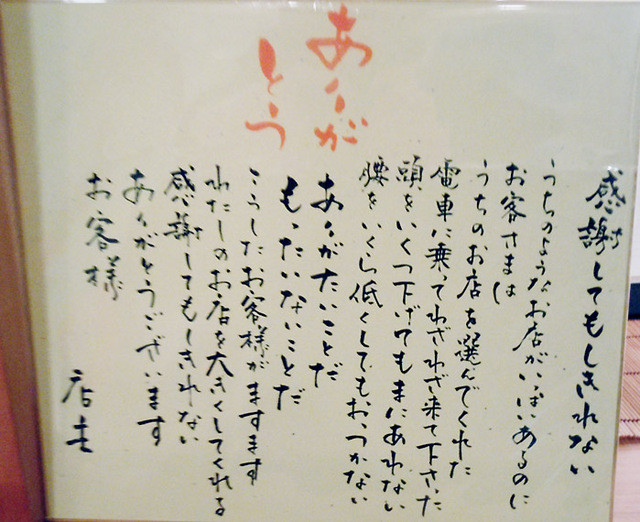 ありが
とう
感謝してもしきれない
うちのようなお店がいっぱいあるのに
お客さまは
うちのお店を選んでくれた
電車に乗ってわざわざ来て下さった
頭をいくつ下げてもまにあわない
腰をいくら低くしてもおっつかない
ありがたいことだ
もったいないことだ
こうしたお客様がますます
わたしのお店を大きくしてくれる
感謝してもしきれない
ありがとうございます
お客様
店主